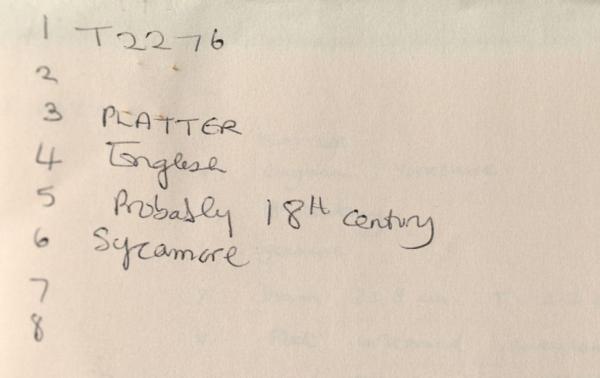 1 T2276
2
3 PLATTER
4 English
5 Probably 18TH century
6 Sycamore
7
8